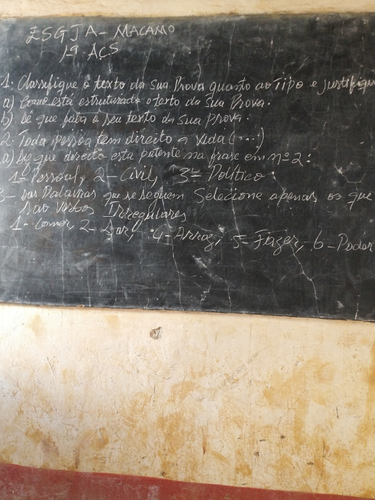 ESGJA - MACAMO
1ª ACS
1. Classifique o texto da sua Prova quanto ao Tipo e justifique
a) Como está estruturado o texto da sua Prova.
b) De que fala o seu texto da sua prova.
2. Toda pessoa tem direito a vida (...)
a) De que direito esta patente na frase em nº 2:
1º Pessoal, 2 - Civil, 3º Político.
3 - das Palavras que se seguem Selecione apenas os que
são Verbos Irregulares
1 - Comer, 2 - Dar, 4 - Arroz, 5 - Fazer, 6 - Podar